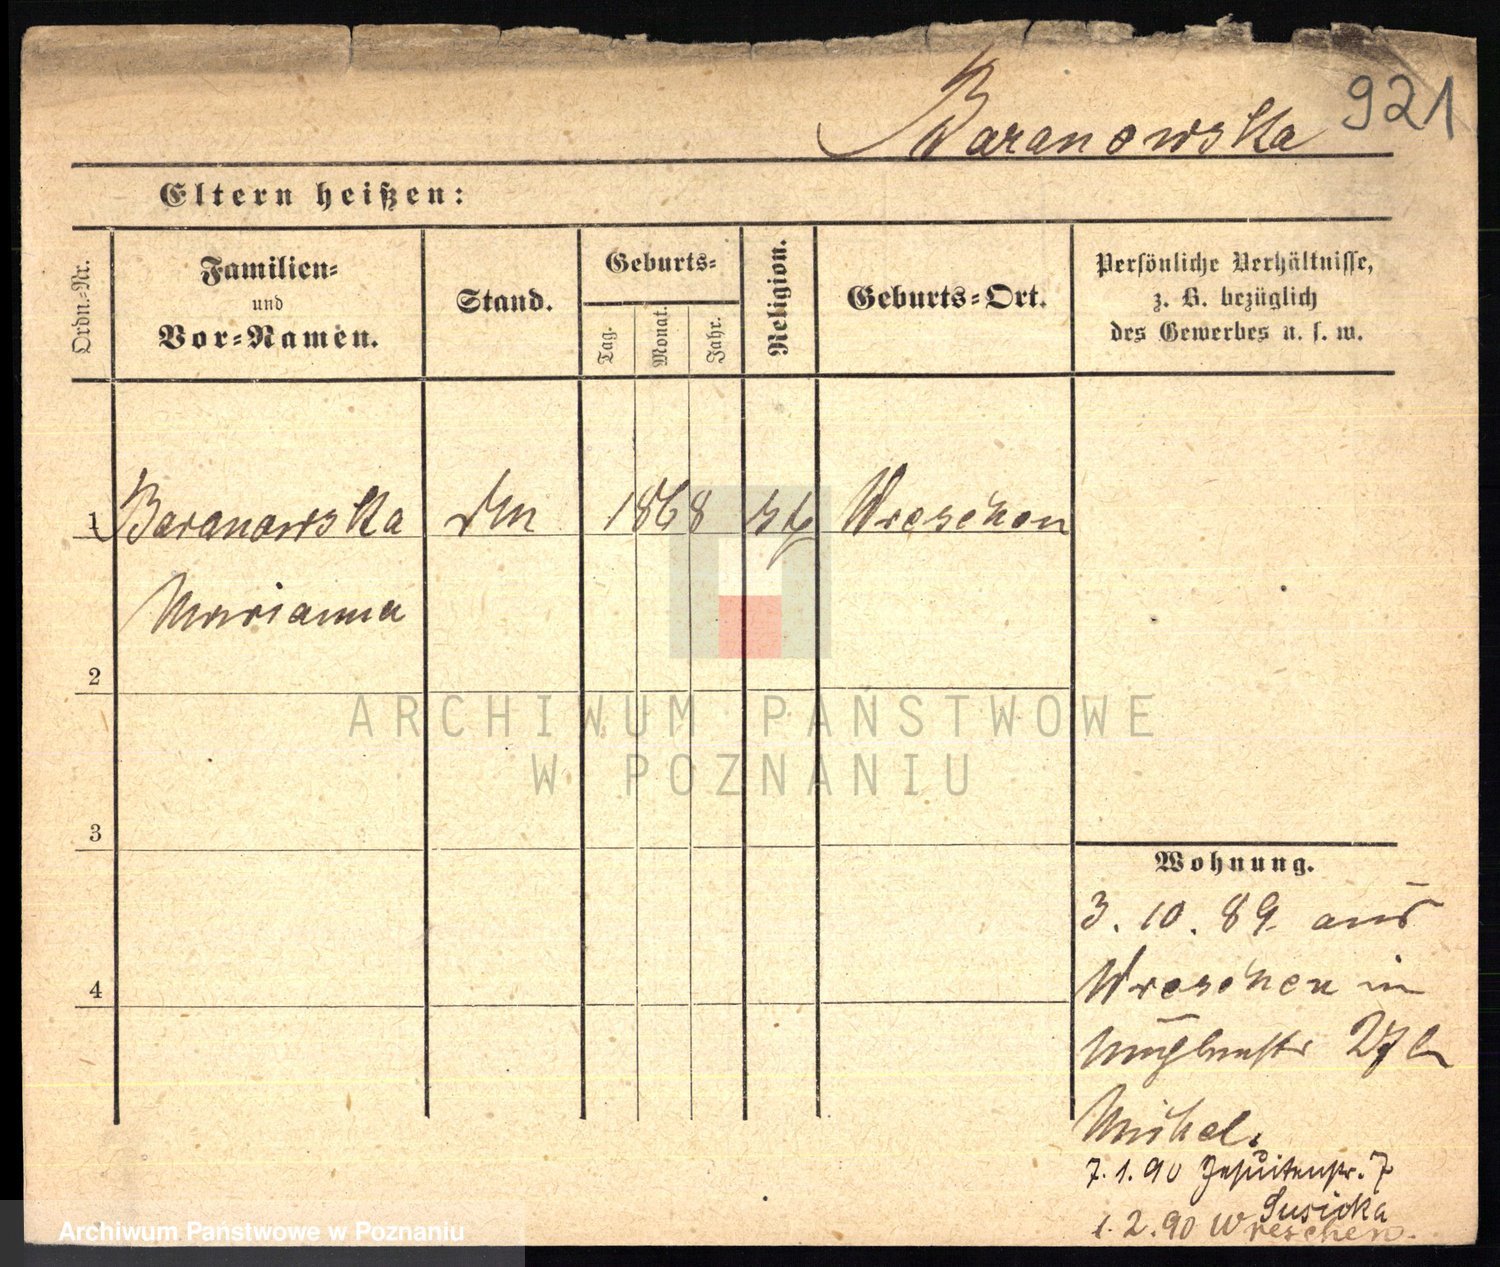 921
Baranowska
Eltern heißen:
Ordn.-Nr.
Familien-
und
Vor-Namen.
Stand.
Geburts-
Tag.
Monat.
Jahr.
Religion.
Geburts-Ort.
Persönliche Verhältnisse,
z. B. bezüglich
des Gewerbes u. s. w.
1 Baranowska 1868 Wreschen
Marianna
2
ARCHIWUM PAŃSTWOWE
W POZNANIU
3
4
Wohnung.
3. 10. 89 aus
Wreschen in
27
7. 1. 90 Jesuitenstr. 7
Susicka
1. 2. 90 Wreschen.
Archiwum Państwowe w Poznaniu